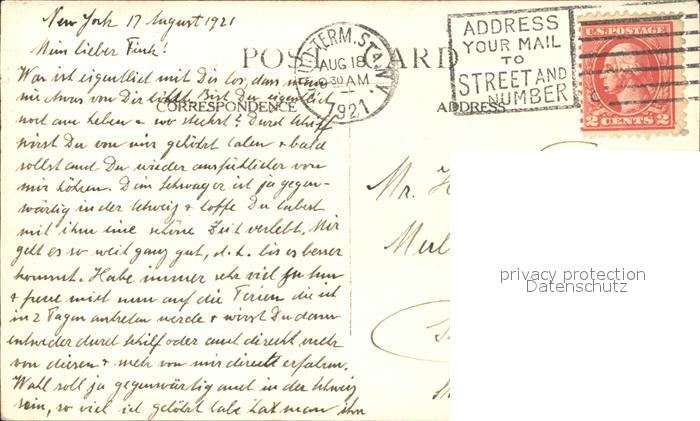 New York 17 August 1921
Mein lieber Fink!
Was ist eigentlich mit Dir los, dass man
nie etwas von Dir hört. Bist Du eigentlich
noch am Leben & wo steckst? Durch Schiff
wirst Du von mir gehört haben & bald
sollst auch Du wieder ausführlicher von
mir hören. Dein Schwager ist ja gegen-
wärtig in der Schweiz & hoffe Du habest
mit ihm eine schöne Zeit verlebt. Mir
geht es so weit ganz gut, d.h. bis es besser
kommt. Habe immer sehr viel zu tun
& freue mich nun auf die Ferien die ich
in 2 Tagen antreten werde & wirst Du dann
entweder durch Schiff oder auch direkt mehr
von diesen & mehr von mir direkt erfahren.
Wahl soll ja gegenwärtig auch in der Schweiz
sein, so viel ich gehört habe hat man ihn
POST CARD
CORRESPONDENCE
ADDRESS
TERM. STA. N.Y.
AUG 18
9 30 AM
1921
ADDRESS
YOUR MAIL
TO
STREET AND
NUMBER
U.S. POSTAGE
2 CENTS 2
Mr. H
privacy protection
Datenschutz